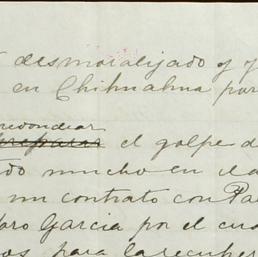 desmoralijado y y
en Chihuahua por
redondear
preparar el golpe d
do mucho en la
un contrato con Pa
aro Garcia por el cua
os, para la recuper